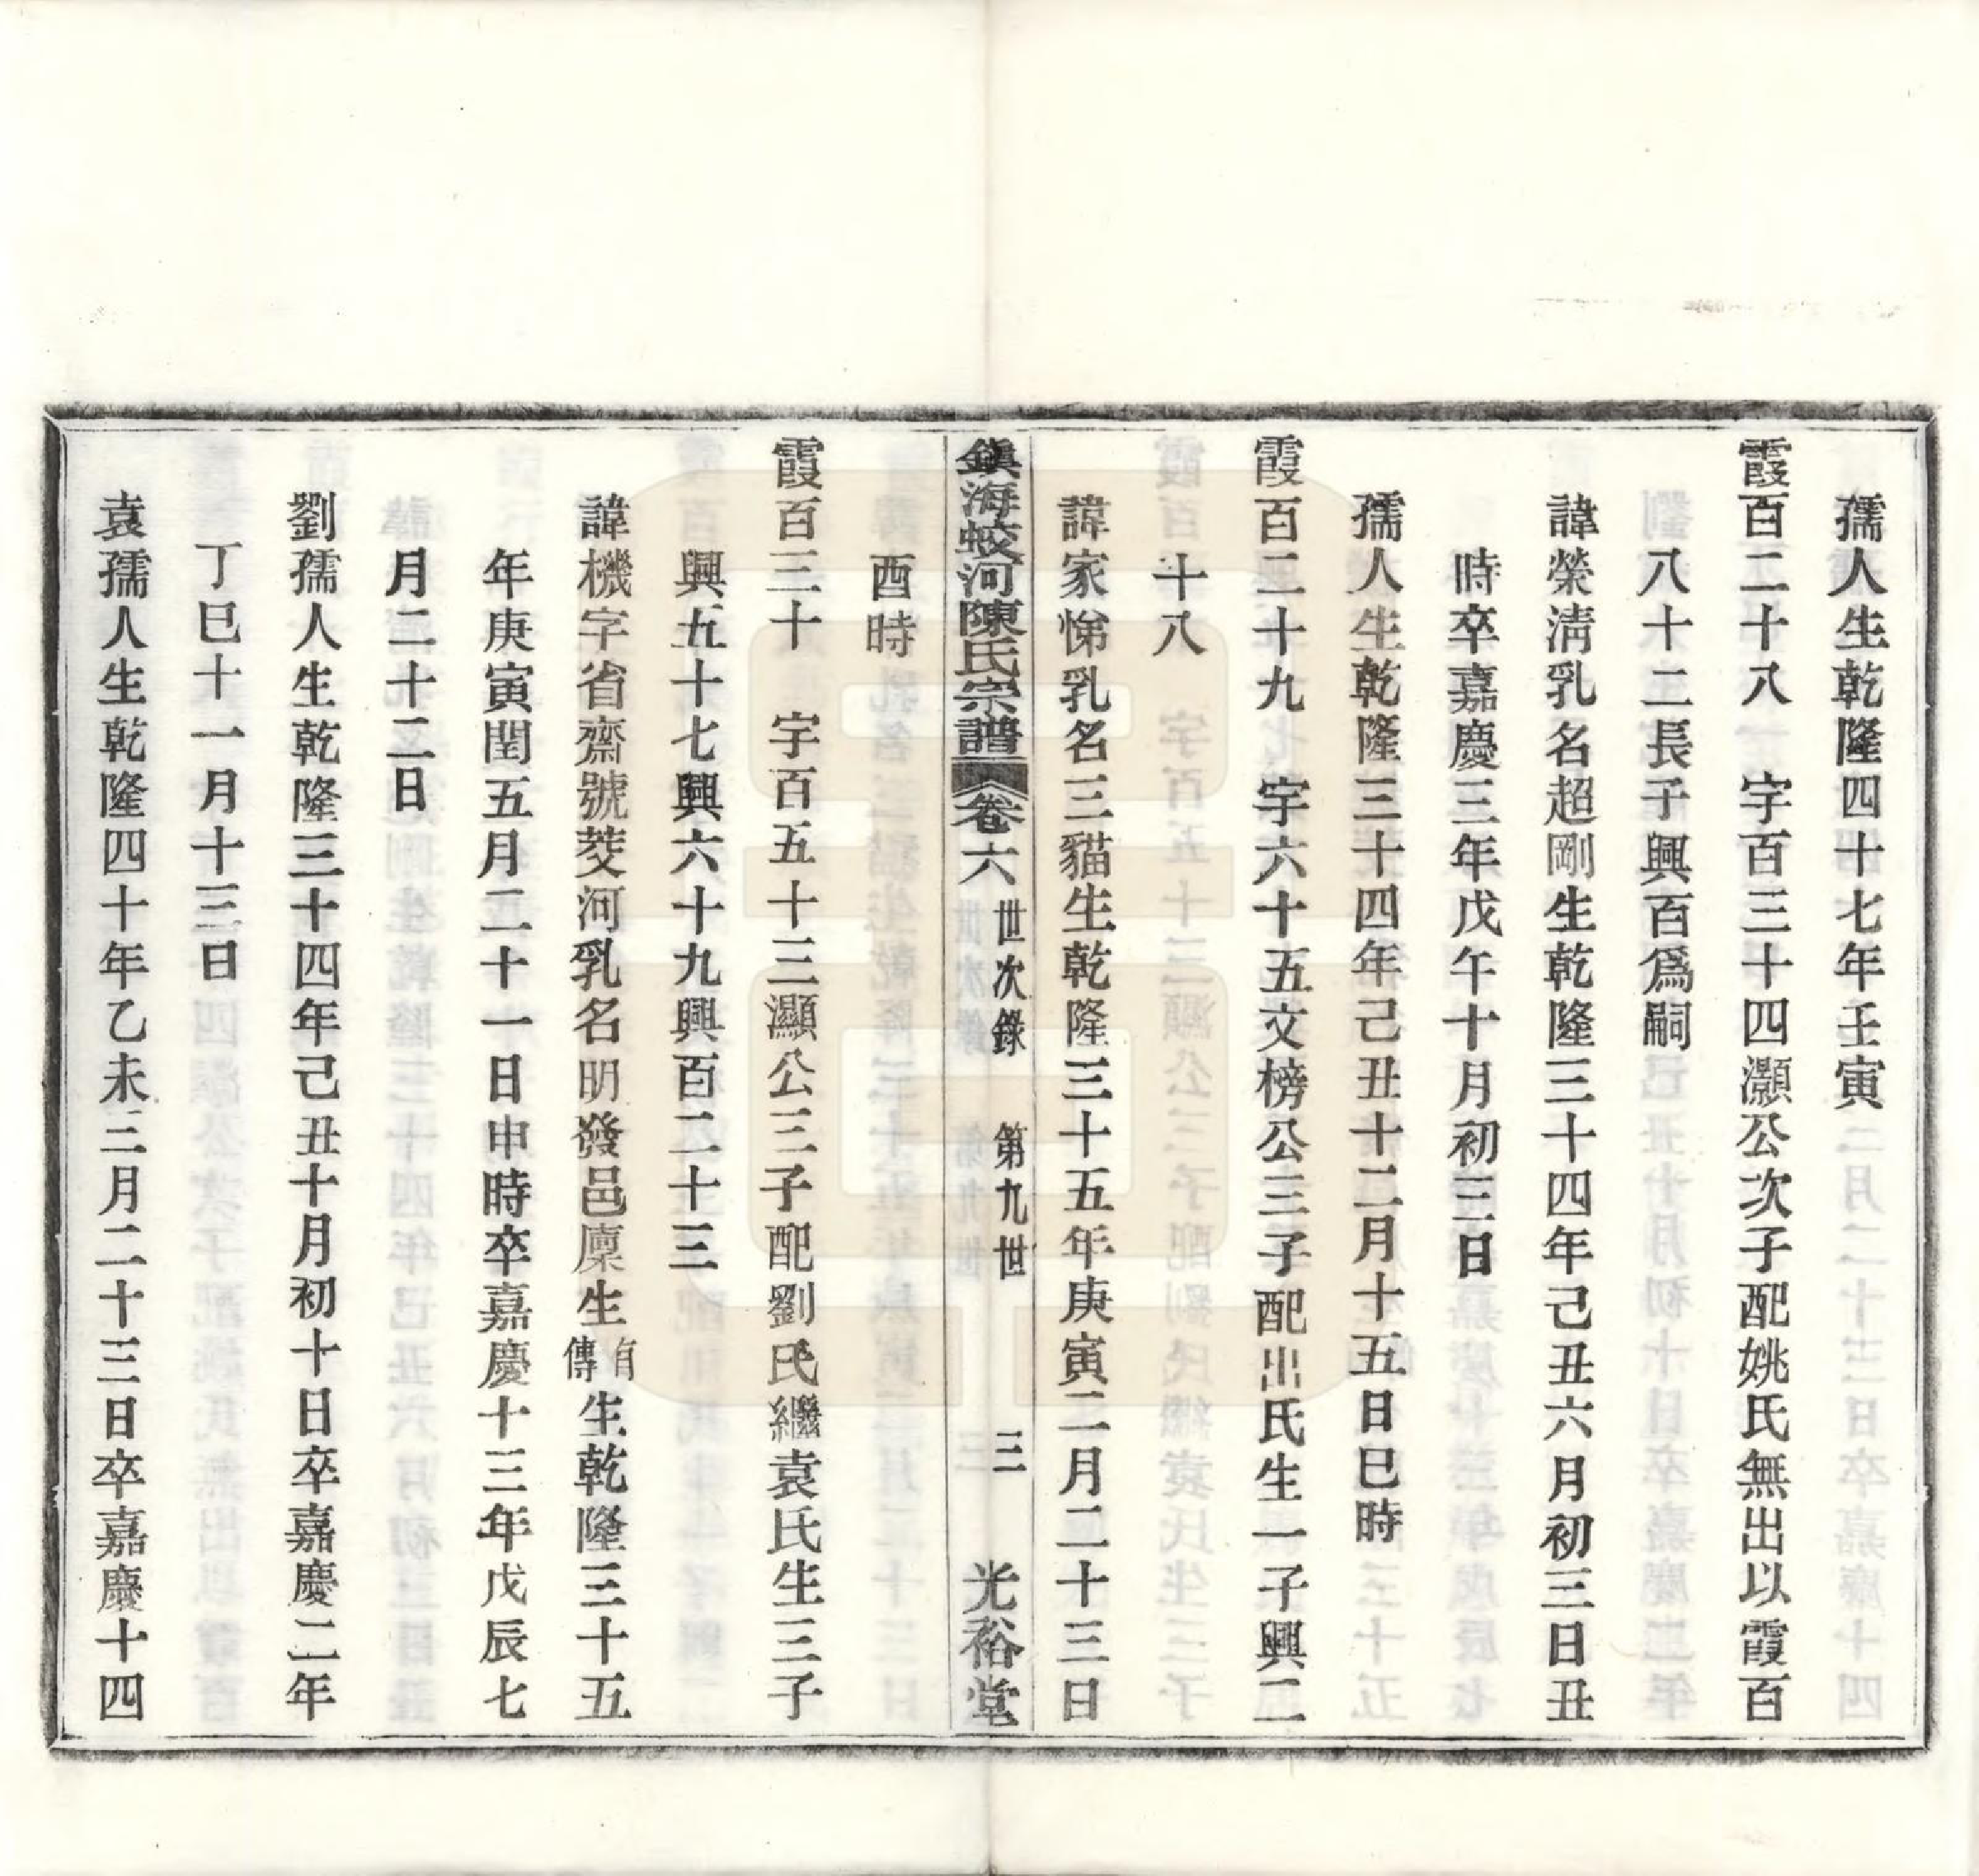 孺人生乾隆四十七年壬寅
霞百二十八　字百三十四灝公次子配姚氏無出以霞百
八十二長子興百爲嗣
諱榮淸乳名超剛生乾隆三十四年己丑六月初三日丑
時卒嘉慶三年戊午十月初三日
孺人生乾隆三十四年己丑十二月十五日巳時
霞百二十九　字六十五文榜公三子配出氏生一子興二
十八
諱家悌乳名三貓生乾隆三十五年庚寅二月二十三日
鎭海蛟河陳氏宗譜 卷六 世次錄 第九世 三 光裕堂
酉時
霞百三十　字百五十三灝公三子配劉氏繼袁氏生三子
興五十七興六十九興百二十三
諱機字省齋號茭河乳名明發邑廩生有傳生乾隆三十五
年庚寅閏五月二十一日申時卒嘉慶十三年戊辰七
月二十二日
劉孺人生乾隆三十四年己丑十月初十日卒嘉慶二年
丁巳十一月十三日
袁孺人生乾隆四十年乙未三月二十三日卒嘉慶十四